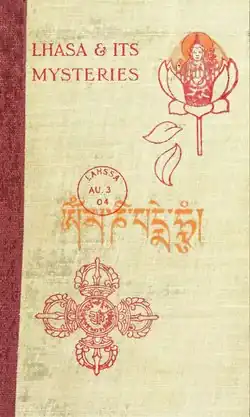 LHASA & ITS
MYSTERIES
LAHSSA
AU. 3
04
ཨོཾ་མ་ཎི་པདྨེ་ཧཱུྃ།